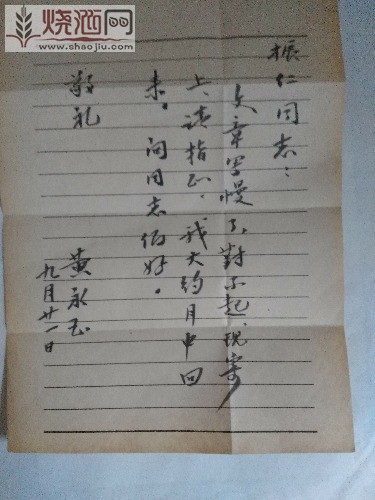 烧酒网
www.shaojiu.com
振仁同志：
文章写慢了，对不起，现寄
上，请指正。我大约月中回
来。问同志们好。
敬礼
黄永玉
九月廿一日